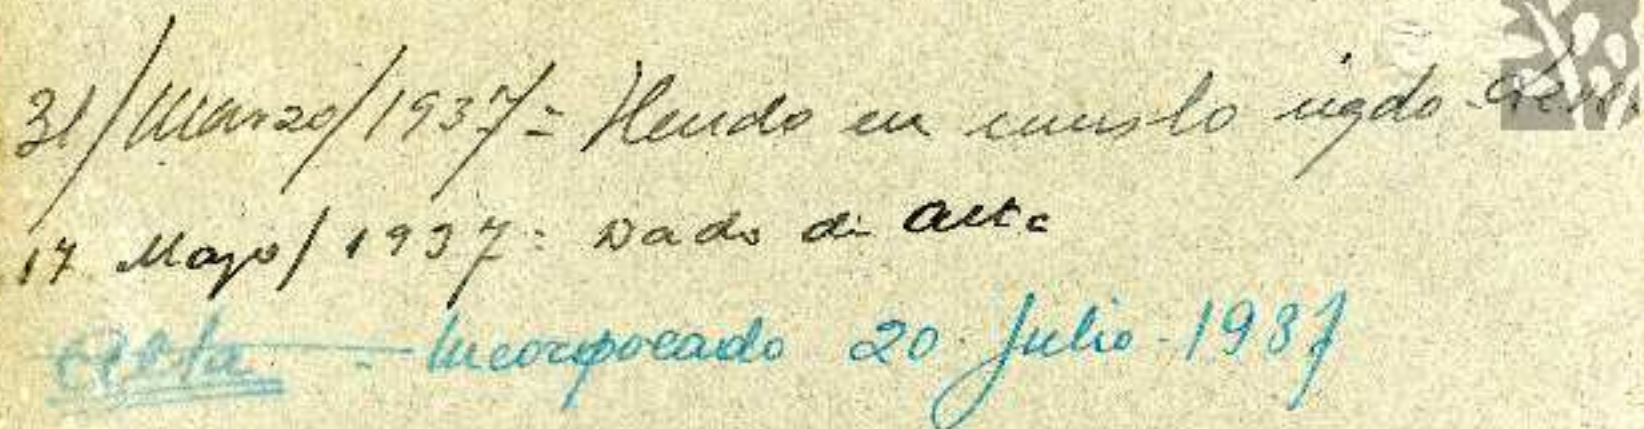 31/Marzo/1937= Herido en muslo izqdo.
17 Mayo/1937= Dado de alta
Alta - Incorporado 20 Julio-1937